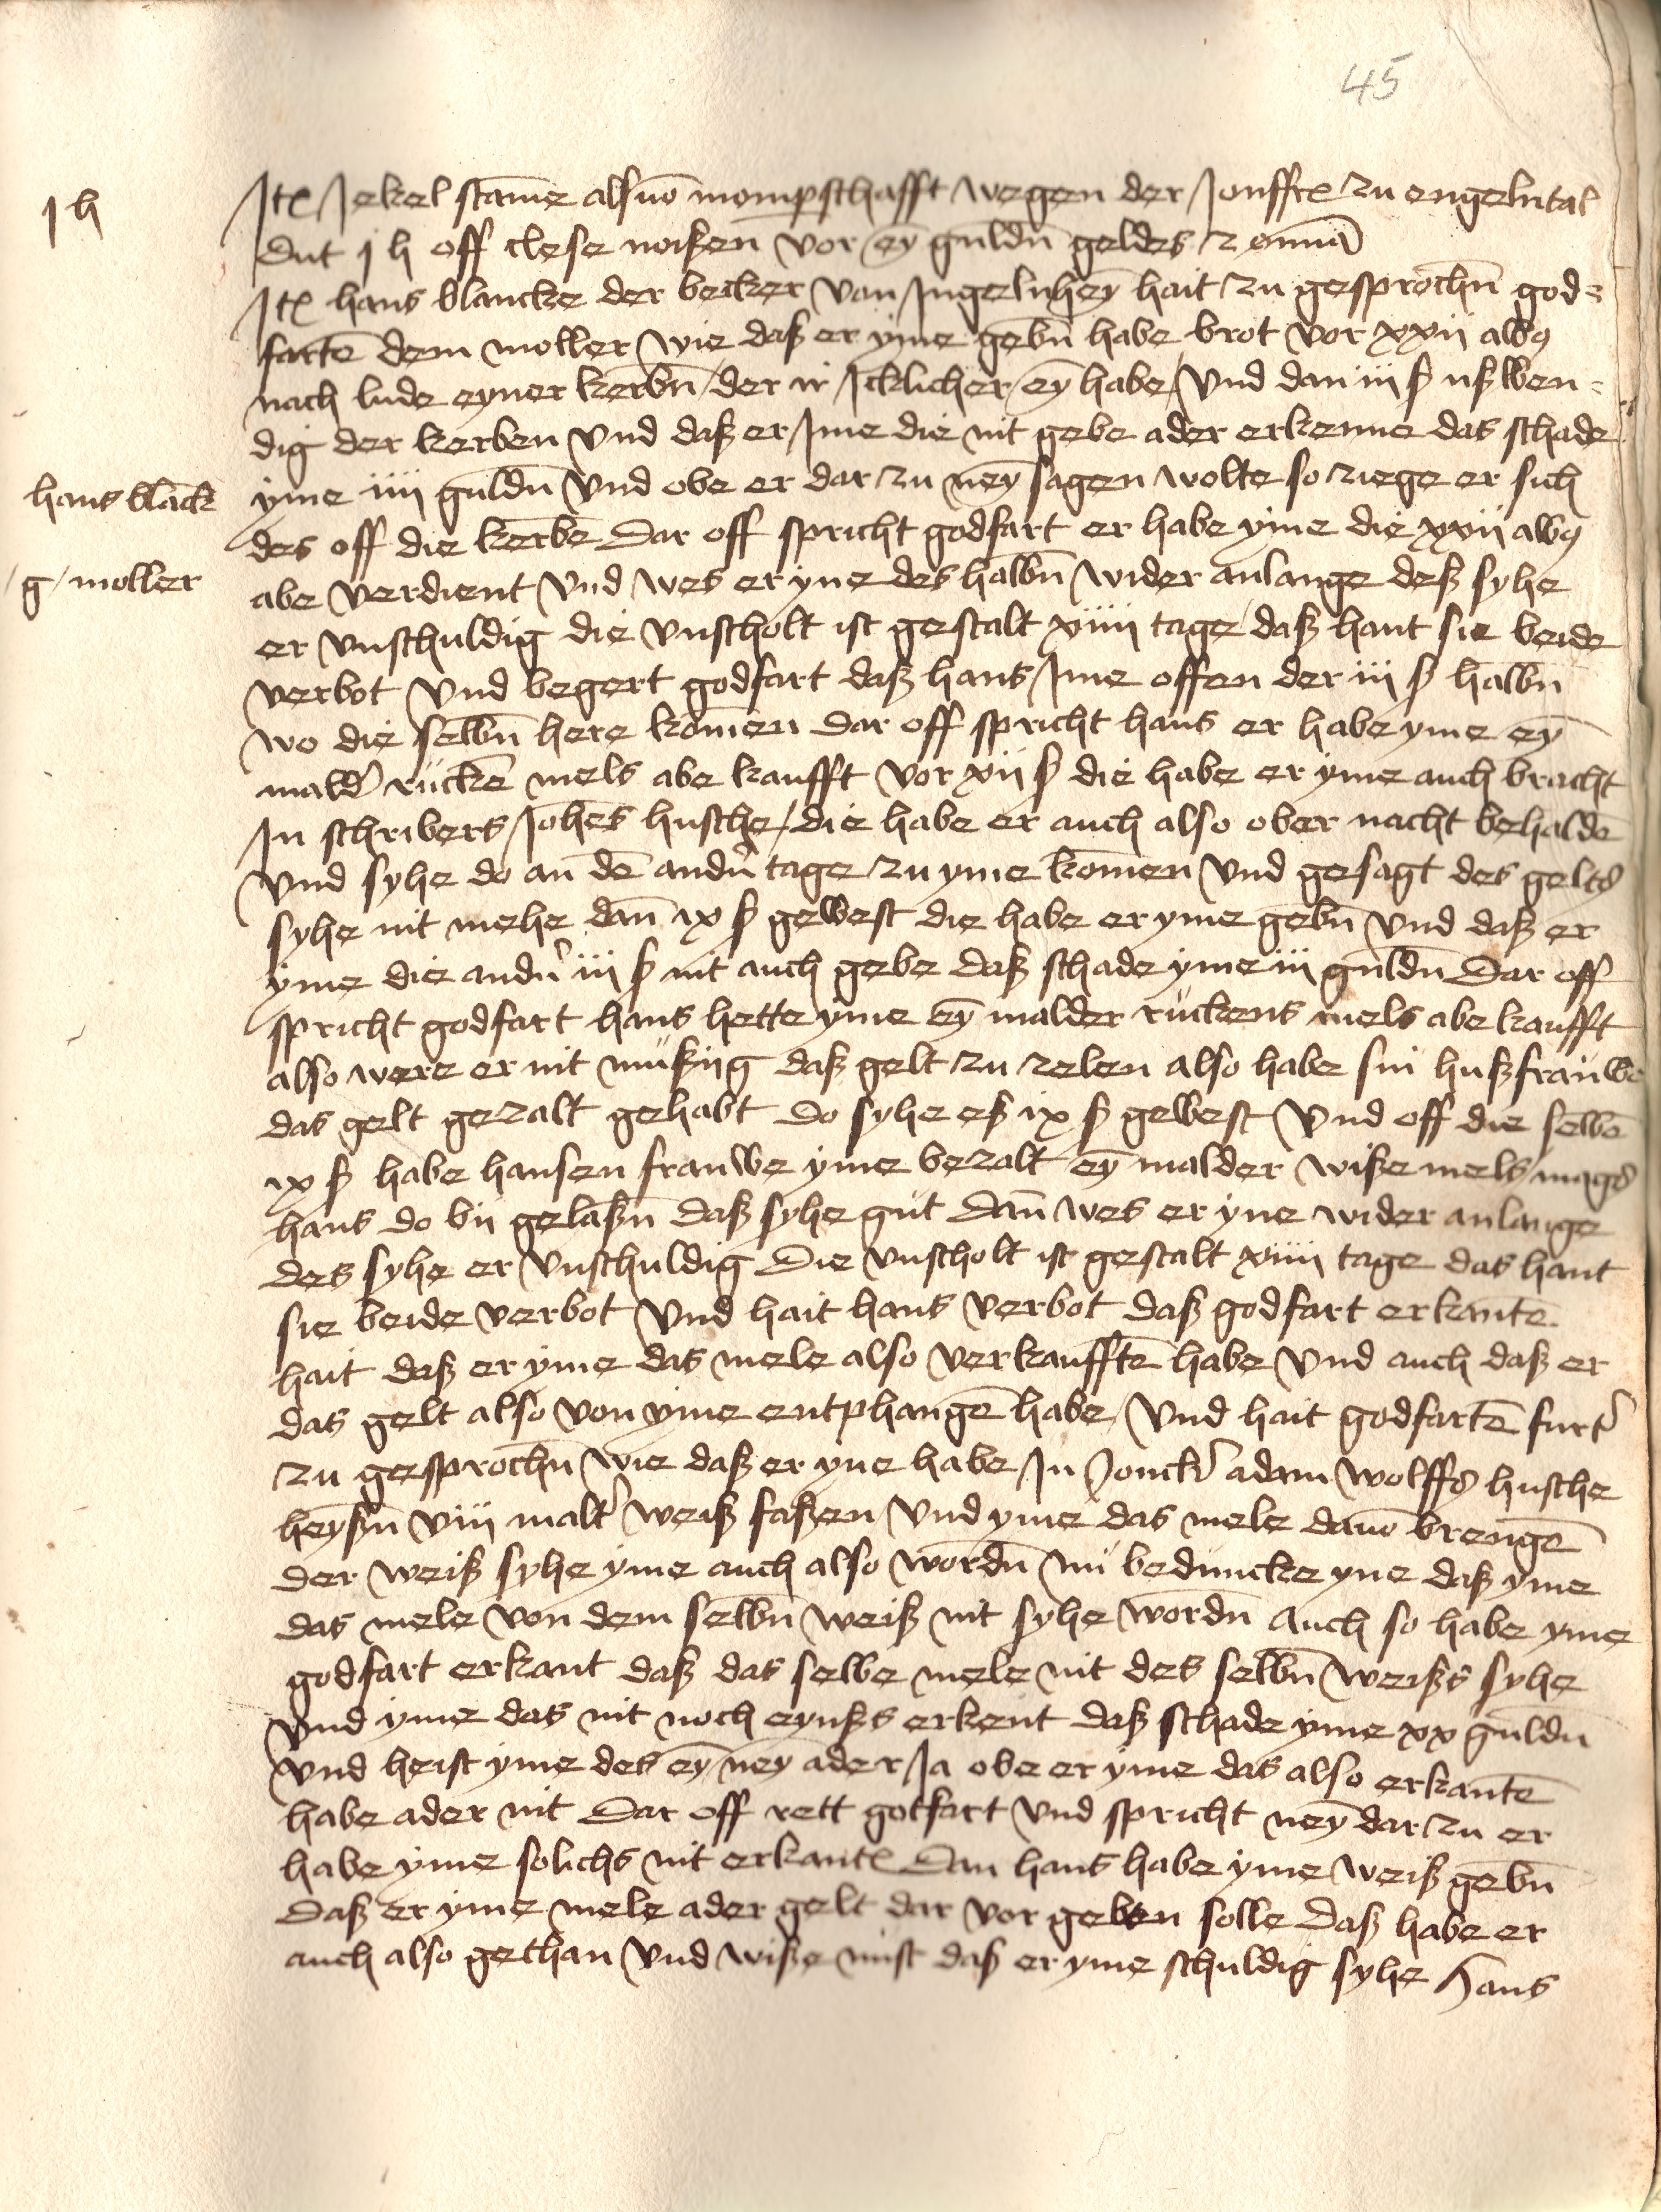 45
Itē Jekel stam̄e als vō momp̄schafft wegen der Jonffrē zu engelntal
dut j h off clese noißen vor ey̅ guldn̄ geldes et om̄ia
Itē hans blancke der becker von Ingelnhey̅ hait zu gesproch̄n god=
fartē dem moller wie daß er yme geb̄n habe brot vor xxij alb9
nach lude eyner kerb̄n der ir Icklicher ey̅ habe vnd dan iij ß ußwen=
dig der kerben vnd daß er Ime die nit gebe ader erkenne das schade
yme iiij guldn̄ vnd obe er dar zu ney̅ sagen wolte so ziege er sich
des off die kerbē Dar off spricht godfart er habe yme die xxij alb9
abe verdient vnd wes er yne des halb̄n wider anlange deß syhe
er vnschuldig die vnscholt ist gestalt xiiij tage daß hant sie beide
verbot vnd begert godfart daß hans Ime offen der iij ß halb̄n
wo die selb̄n here kom̄en dar off spricht hans er habe yme ey̅
mald' ruckē mels abe kaufft vor xij ß die habe er yme auch bracht
In schribers Joh̄es husche die habe er auch also ober nacht behaldē
vnd syhe do an dē andn̄' tage zu yme kom̄en vnd gesagt des gelts
syhe nit mehe dan̄ ix ß gewest die habe er yme geb̄n vnd daß er
yme die andn̄' iij ß nit auch gebe daß schade yme iij guldn̄ Dar off
spricht godfart hans hette yme ey̅ malder ruckens mels abe kaufft
also were er nit mußiig daß gelt zu zelen also habe sin hußfrauwe
das gelt gezalt gehabt do syhe eß ix ß gewest vnd off die selbē
ix ß habe hansen frauwe yme bezalt ey̅ malder wiße mels mags
hans do bij gelaßn̄ daß syhe gut dan̄ wes er yne wider anlange
des syhe er vnschuldig Die vnscholt ist gestalt xiiij tage das hant
sie beide verbot vnd hait hans verbot daß godfart erkantē
hait daß er yme das mele also verkaufftē habe vnd auch daß er
das gelt also von yme entphangē habe vnd hait godfartē furt'
zu gesproch̄n wie daß er yne habe In Jonck' adam wolffs husche
heyßn̄ viij malt' weiß faßen vnd yme das mele dauō brengē
der weiß syhe yme auch also word̄n nu beduncke yne daß yme
das mele von dem selb̄n weiß nit syhe word̄n auch so habe yme
godfart erkant daß das selbe mele nit des selb̄n weißs syhe
vnd yme das nit noch eynßs erkent daß schade yme xx guldn̄
vnd heist yme des ey̅ ney̅ ader Ja obe er yme das also erkantē
habe ader nit Dar off rett gotfart vnd spricht ney̅ dar zu er
habe yme solichs nit erkantē Dan hans habe yme weiß geb̄n
daß er yme mele ader gelt dar vor geben solle daß habe er
auch also gethan vnd wiße nist daß er yme schuldig syhe Hans
j h
hans blāck
g moller